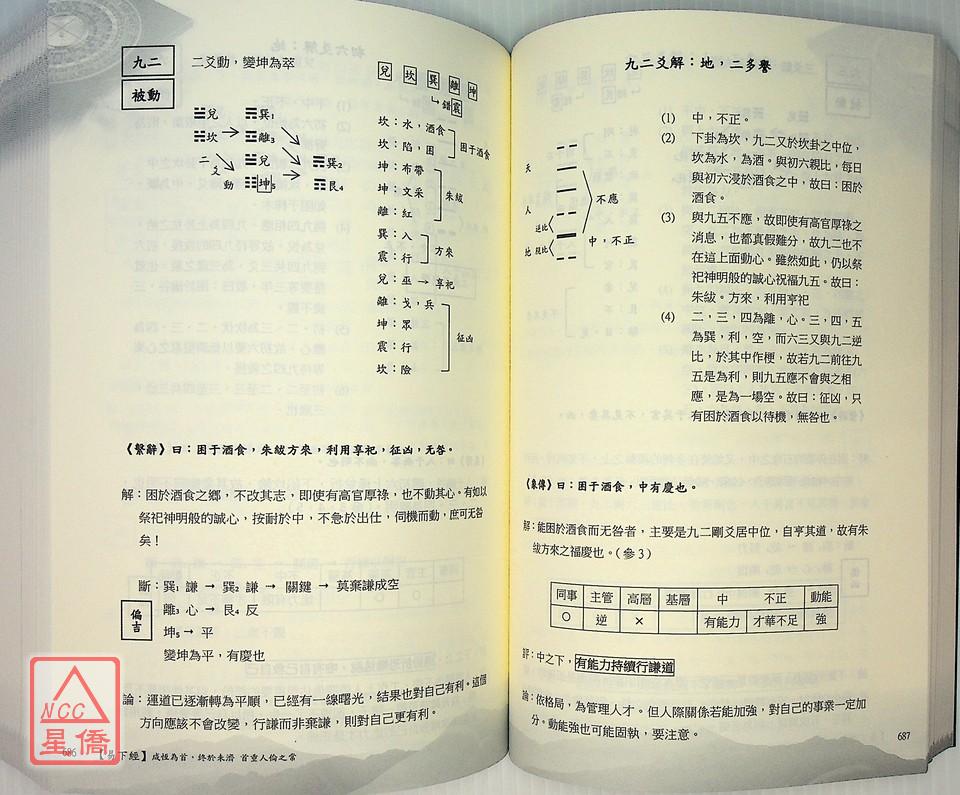 九二
被動
二爻動，變坤為萃
兌 坎 巽 離 坤
錯震
☱兌 ☴巽₁
☵坎 → ☲離₃
二爻動 ☱兌 ☴巽₂
☷坤₅ → ☶艮₄
坎：水，酒食
坎：陷，困
困于酒食
坤：布帶
坤：文采
離：紅
朱紱
巽：入
震：行
方來
兌：巫 → 享祀
離：戈，兵
坤：眾
震：行
坎：險
征凶
《繫辭》曰：困于酒食，朱紱方來，利用享祀，征凶，无咎。
解：困於酒食之鄉，不改其志，即使有高官厚祿，也不動其心。有如以
祭祀神明般的誠心，按耐於中，不急於出仕，伺機而動，庶可无咎
矣！
斷：巽₁ 謙 → 巽₂ 謙 → 關鍵 → 莫棄謙成空
偏吉
離₃ 心 → 艮₄ 反
坤₅ → 平
變坤為平，有慶也
論：運道已逐漸轉為平順，已經有一線曙光，結果也對自己有利。這個
方向應該不會改變，行謙而非棄謙，則對自己更有利。
686 【易下經】咸恆為首，終於未濟 首重人倫之常
NCC
星僑
九二爻解：地，二多譽
天
人
地
逆比
親比
不應
中，不正
(1) 中，不正。
(2) 下卦為坎，九二又於坎卦之中位，
坎為水，為酒。與初六親比，每日
與初六浸於酒食之中，故曰：困於
酒食。
(3) 與九五不應，故即使有高官厚祿之
消息，也都真假難分，故九二也不
在這上面動心。雖然如此，仍以祭
祀神明般的誠心祝福九五。故曰：
朱紱。方來，利用亨祀
(4) 二，三，四為離，心。三，四，五
為巽，利，空，而六三又與九二逆
比，於其中作梗，故若九二前往九
五是為利，則九五應不會與之相
應，是為一場空。故曰：征凶，只
有困於酒食以待機，無咎也。
《象傳》曰：困于酒食，中有慶也。
解：能困於酒食而无咎者，主要是九二剛爻居中位，自亨其道，故有朱
紱方來之福慶也。（參3）
同事 主管 高層 基層 中 不正 動能
○ 逆 × 有能力 才華不足 強
評：中之下，有能力持續行謙道
論：依格局，為管理人才。但人際關係若能加強，對自己的事業一定加
分。動能強也可能固執，要注意。
687